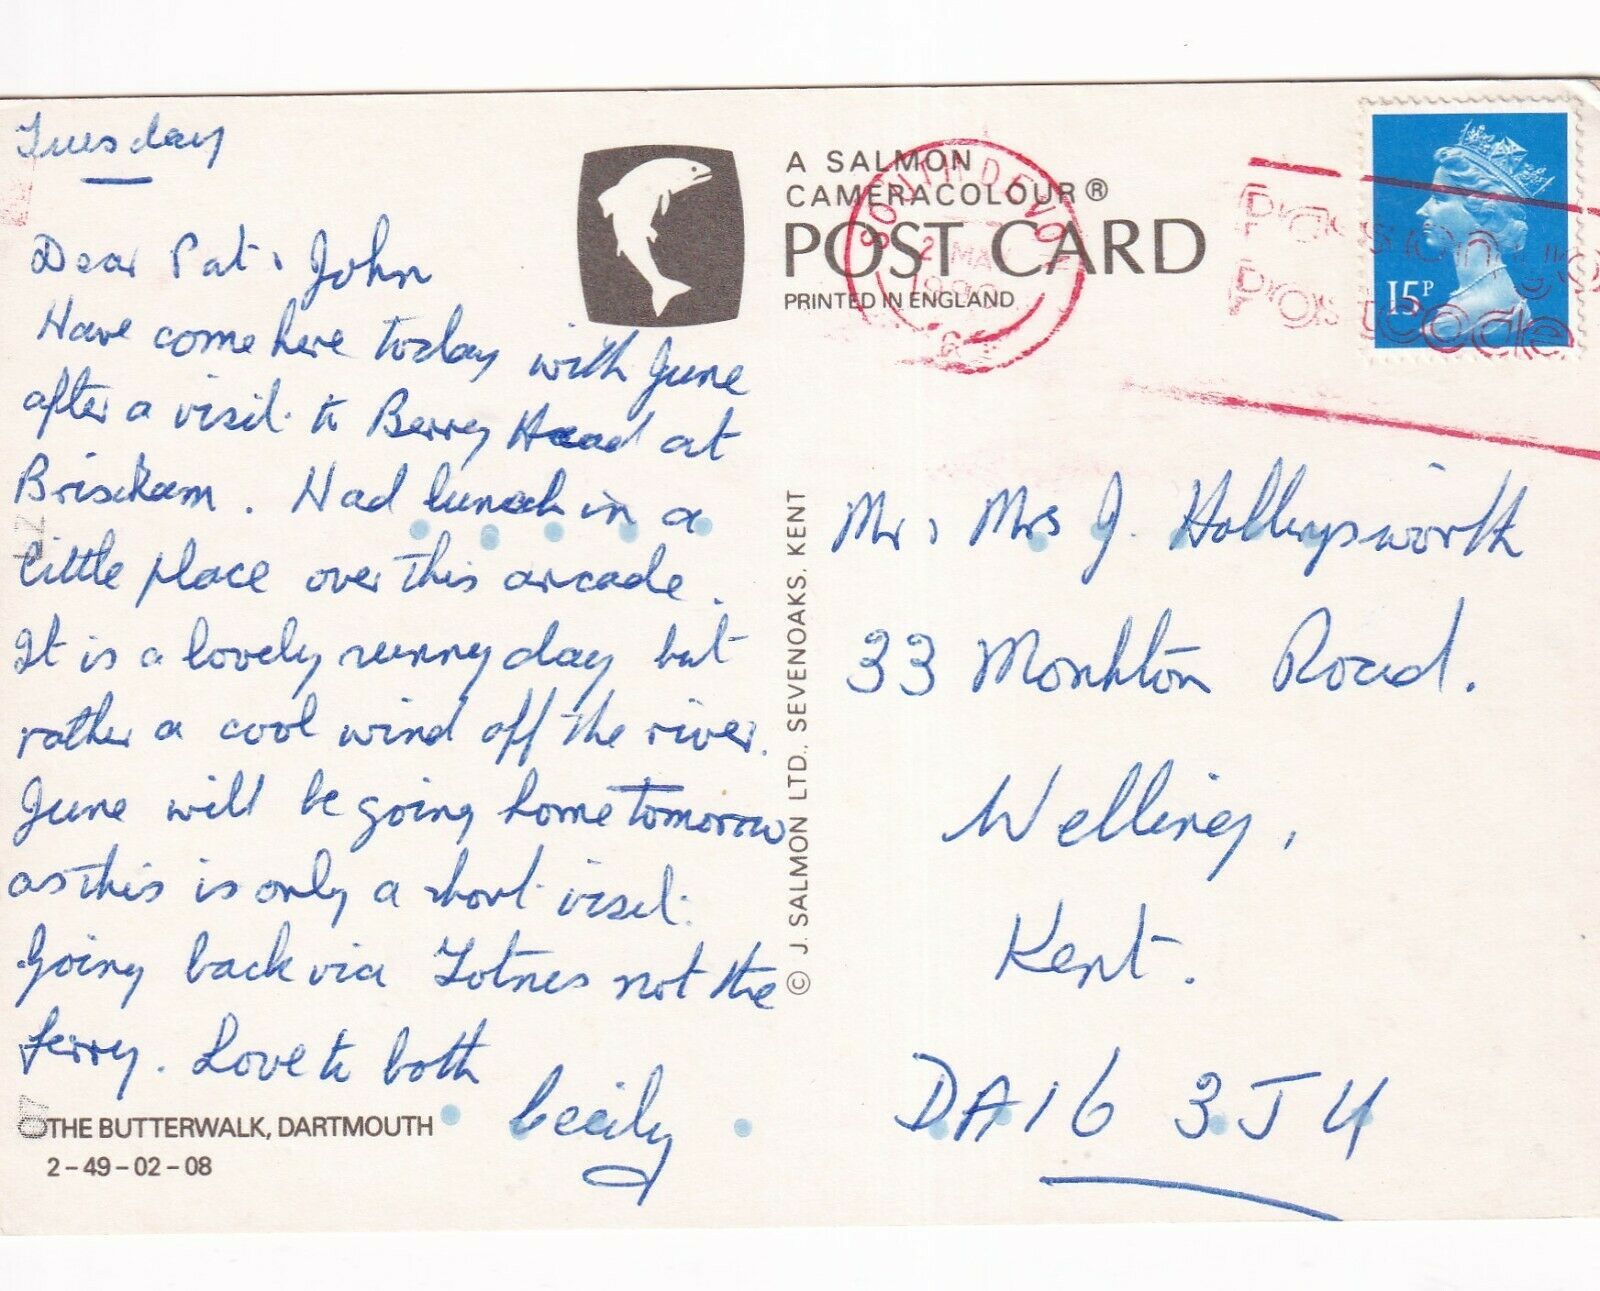 Tuesday
Dear Pat & John
Have come here today with June
after a visit to Berry Head at
Brixham. Had lunch in a
little place over this arcade.
It is a lovely sunny day but
rather a cool wind off the river.
June will be going home tomorrow
as this is only a short visit.
Going back via Totnes not the
ferry. Love to both
Cecily
THE BUTTERWALK, DARTMOUTH
2-49-02-08
A SALMON
CAMERACOLOUR®
POST CARD
PRINTED IN ENGLAND
© J. SALMON LTD., SEVENOAKS, KENT
SOUTH DEVON
2 MA
1990
Passion us
Postcode
15P
Mr & Mrs J. Hollingsworth
33 Monkton Road.
Welling,
Kent.
DA16 3JU